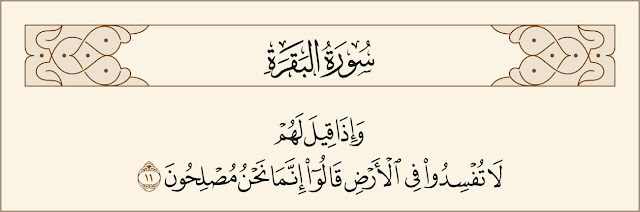 سُورَةُ البَقَرَةِ
وَإِذَا قِيلَ لَهُمْ
لَا تُفْسِدُوا۟ فِى ٱلْأَرْضِ قَالُوٓا۟ إِنَّمَا نَحْنُ مُصْلِحُونَ ١١